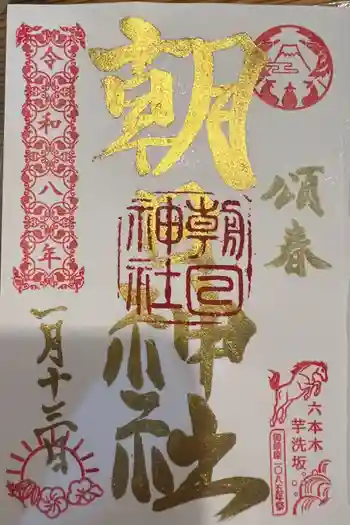 頌春
六本木
芋洗坂
朝日神社
朝日
神社
令和八年
一月十三日